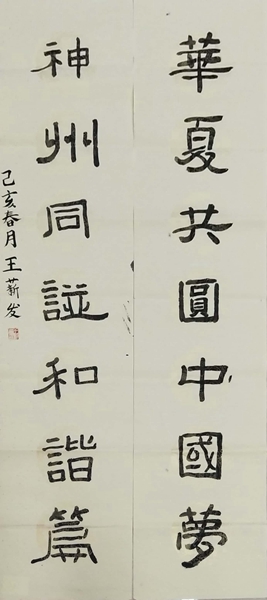 華夏共圓中國夢
神州同譜和諧篇
己亥春月王薪发